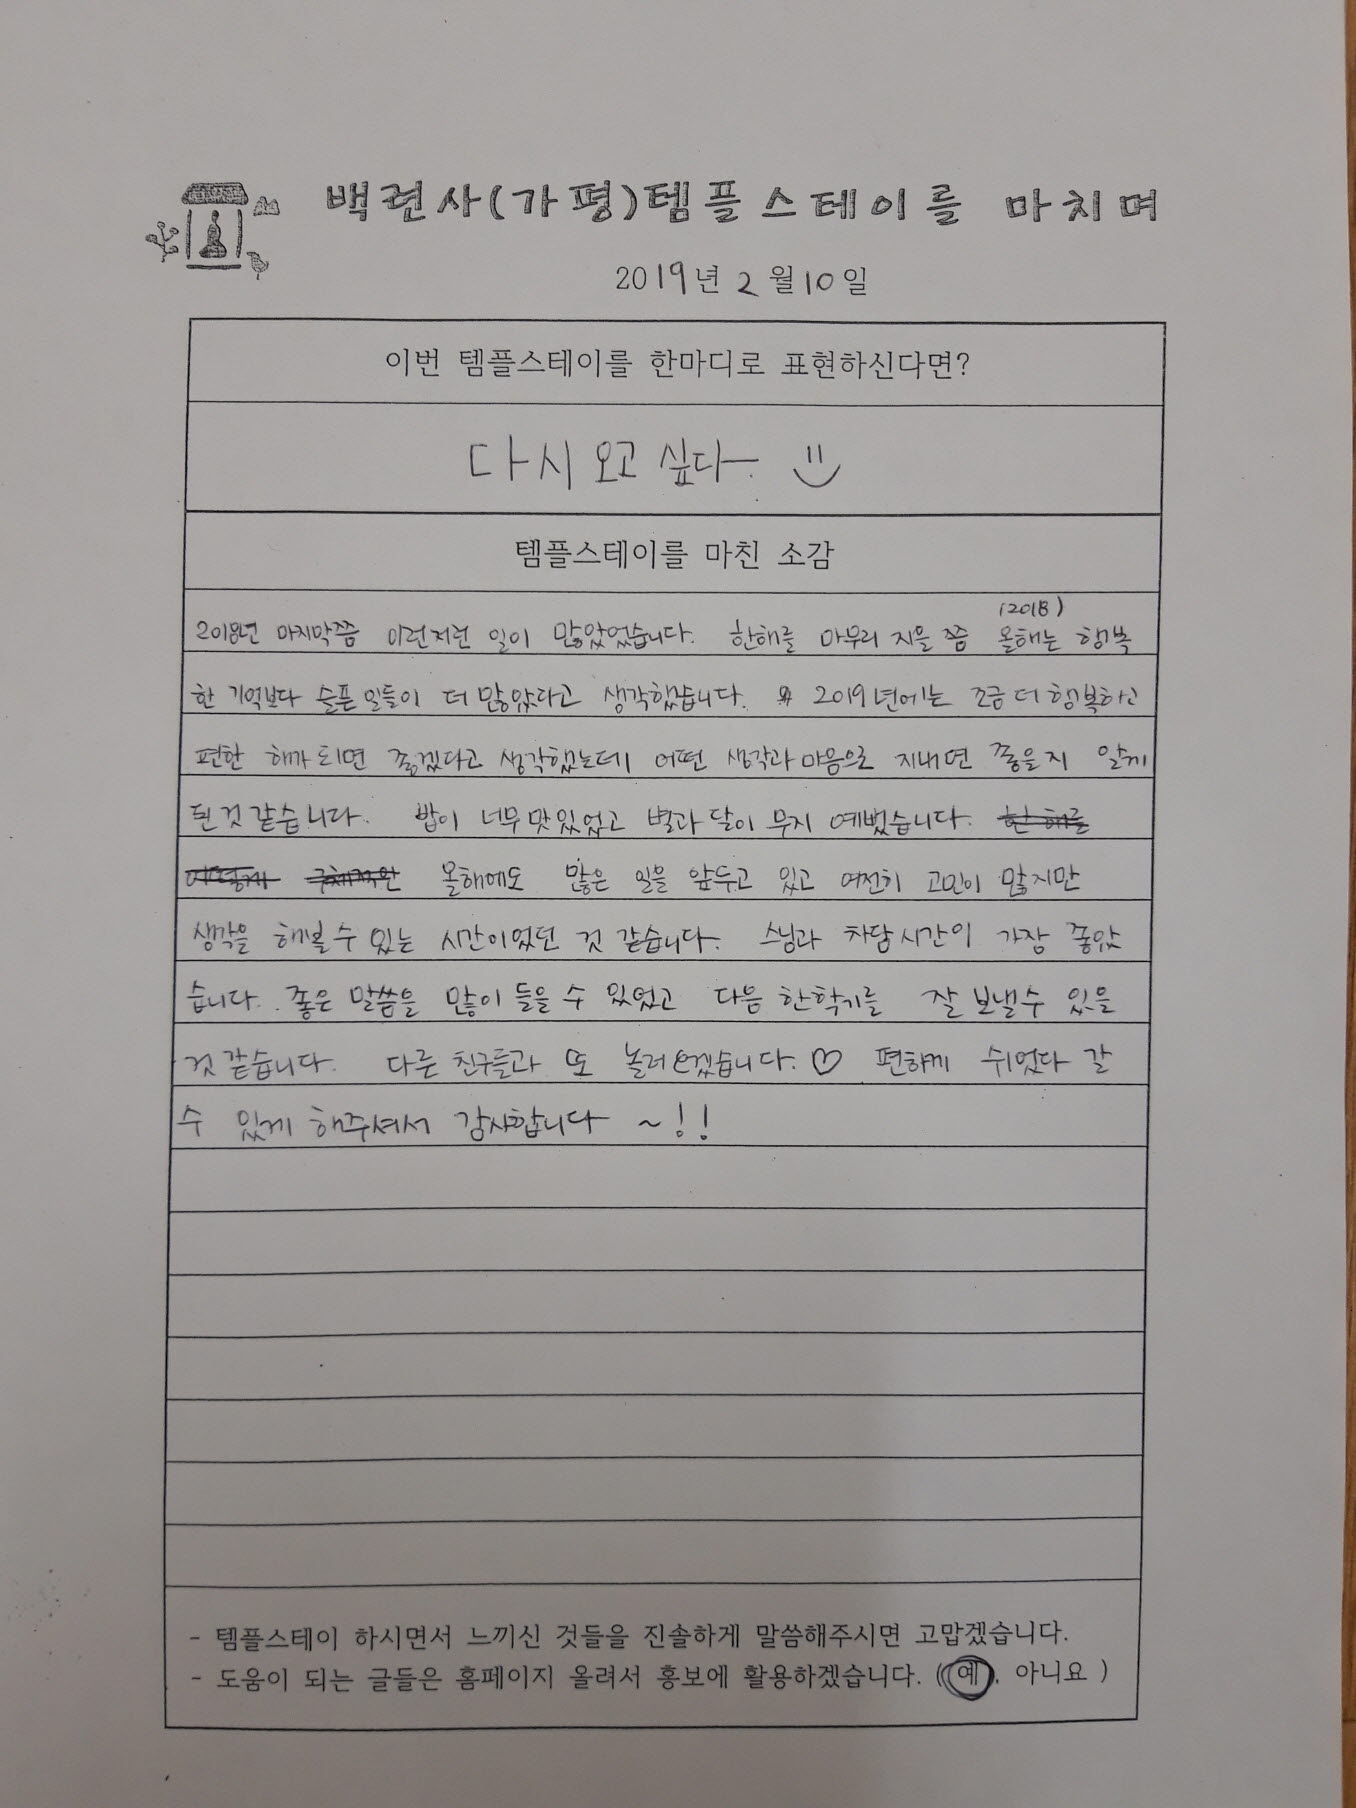 백련사(가평)템플스테이를 마치며
2019년 2월 10일
이번 템플스테이를 한마디로 표현하신다면?
다시 오고 싶다.
템플스테이를 마친 소감
(2018)
2018년 마지막쯤 이런저런 일이 많았었습니다. 한해를 마무리 지을 쯤 올해는 행복
한 기억보다 슬픈 일들이 더 많았다고 생각했습니다. 2019년에는 조금 더 행복하고
편한 해가 되면 좋겠다고 생각했는데 어떤 생각과 마음으로 지내면 좋을지 알게
된 것 같습니다. 밥이 너무 맛있었고 별과 달이 무지 예뻤습니다. 한 해를
어떻게 올해에도 많은 일을 앞두고 있고 여전히 고민이 많지만
생각을 해볼 수 있는 시간이었던 것 같습니다. 스님과 차담시간이 가장 좋았
습니다. 좋은 말씀을 많이 들을 수 있었고 다음 한학기를 잘 보낼수 있을
것 같습니다. 다른 친구들과 또 놀러오겠습니다.♡ 편하게 쉬었다 갈
수 있게 해주셔서 감사합니다 ~!!
- 템플스테이 하시면서 느끼신 것들을 진솔하게 말씀해주시면 고맙겠습니다.
- 도움이 되는 글들은 홈페이지 올려서 홍보에 활용하겠습니다. (예, 아니요 )